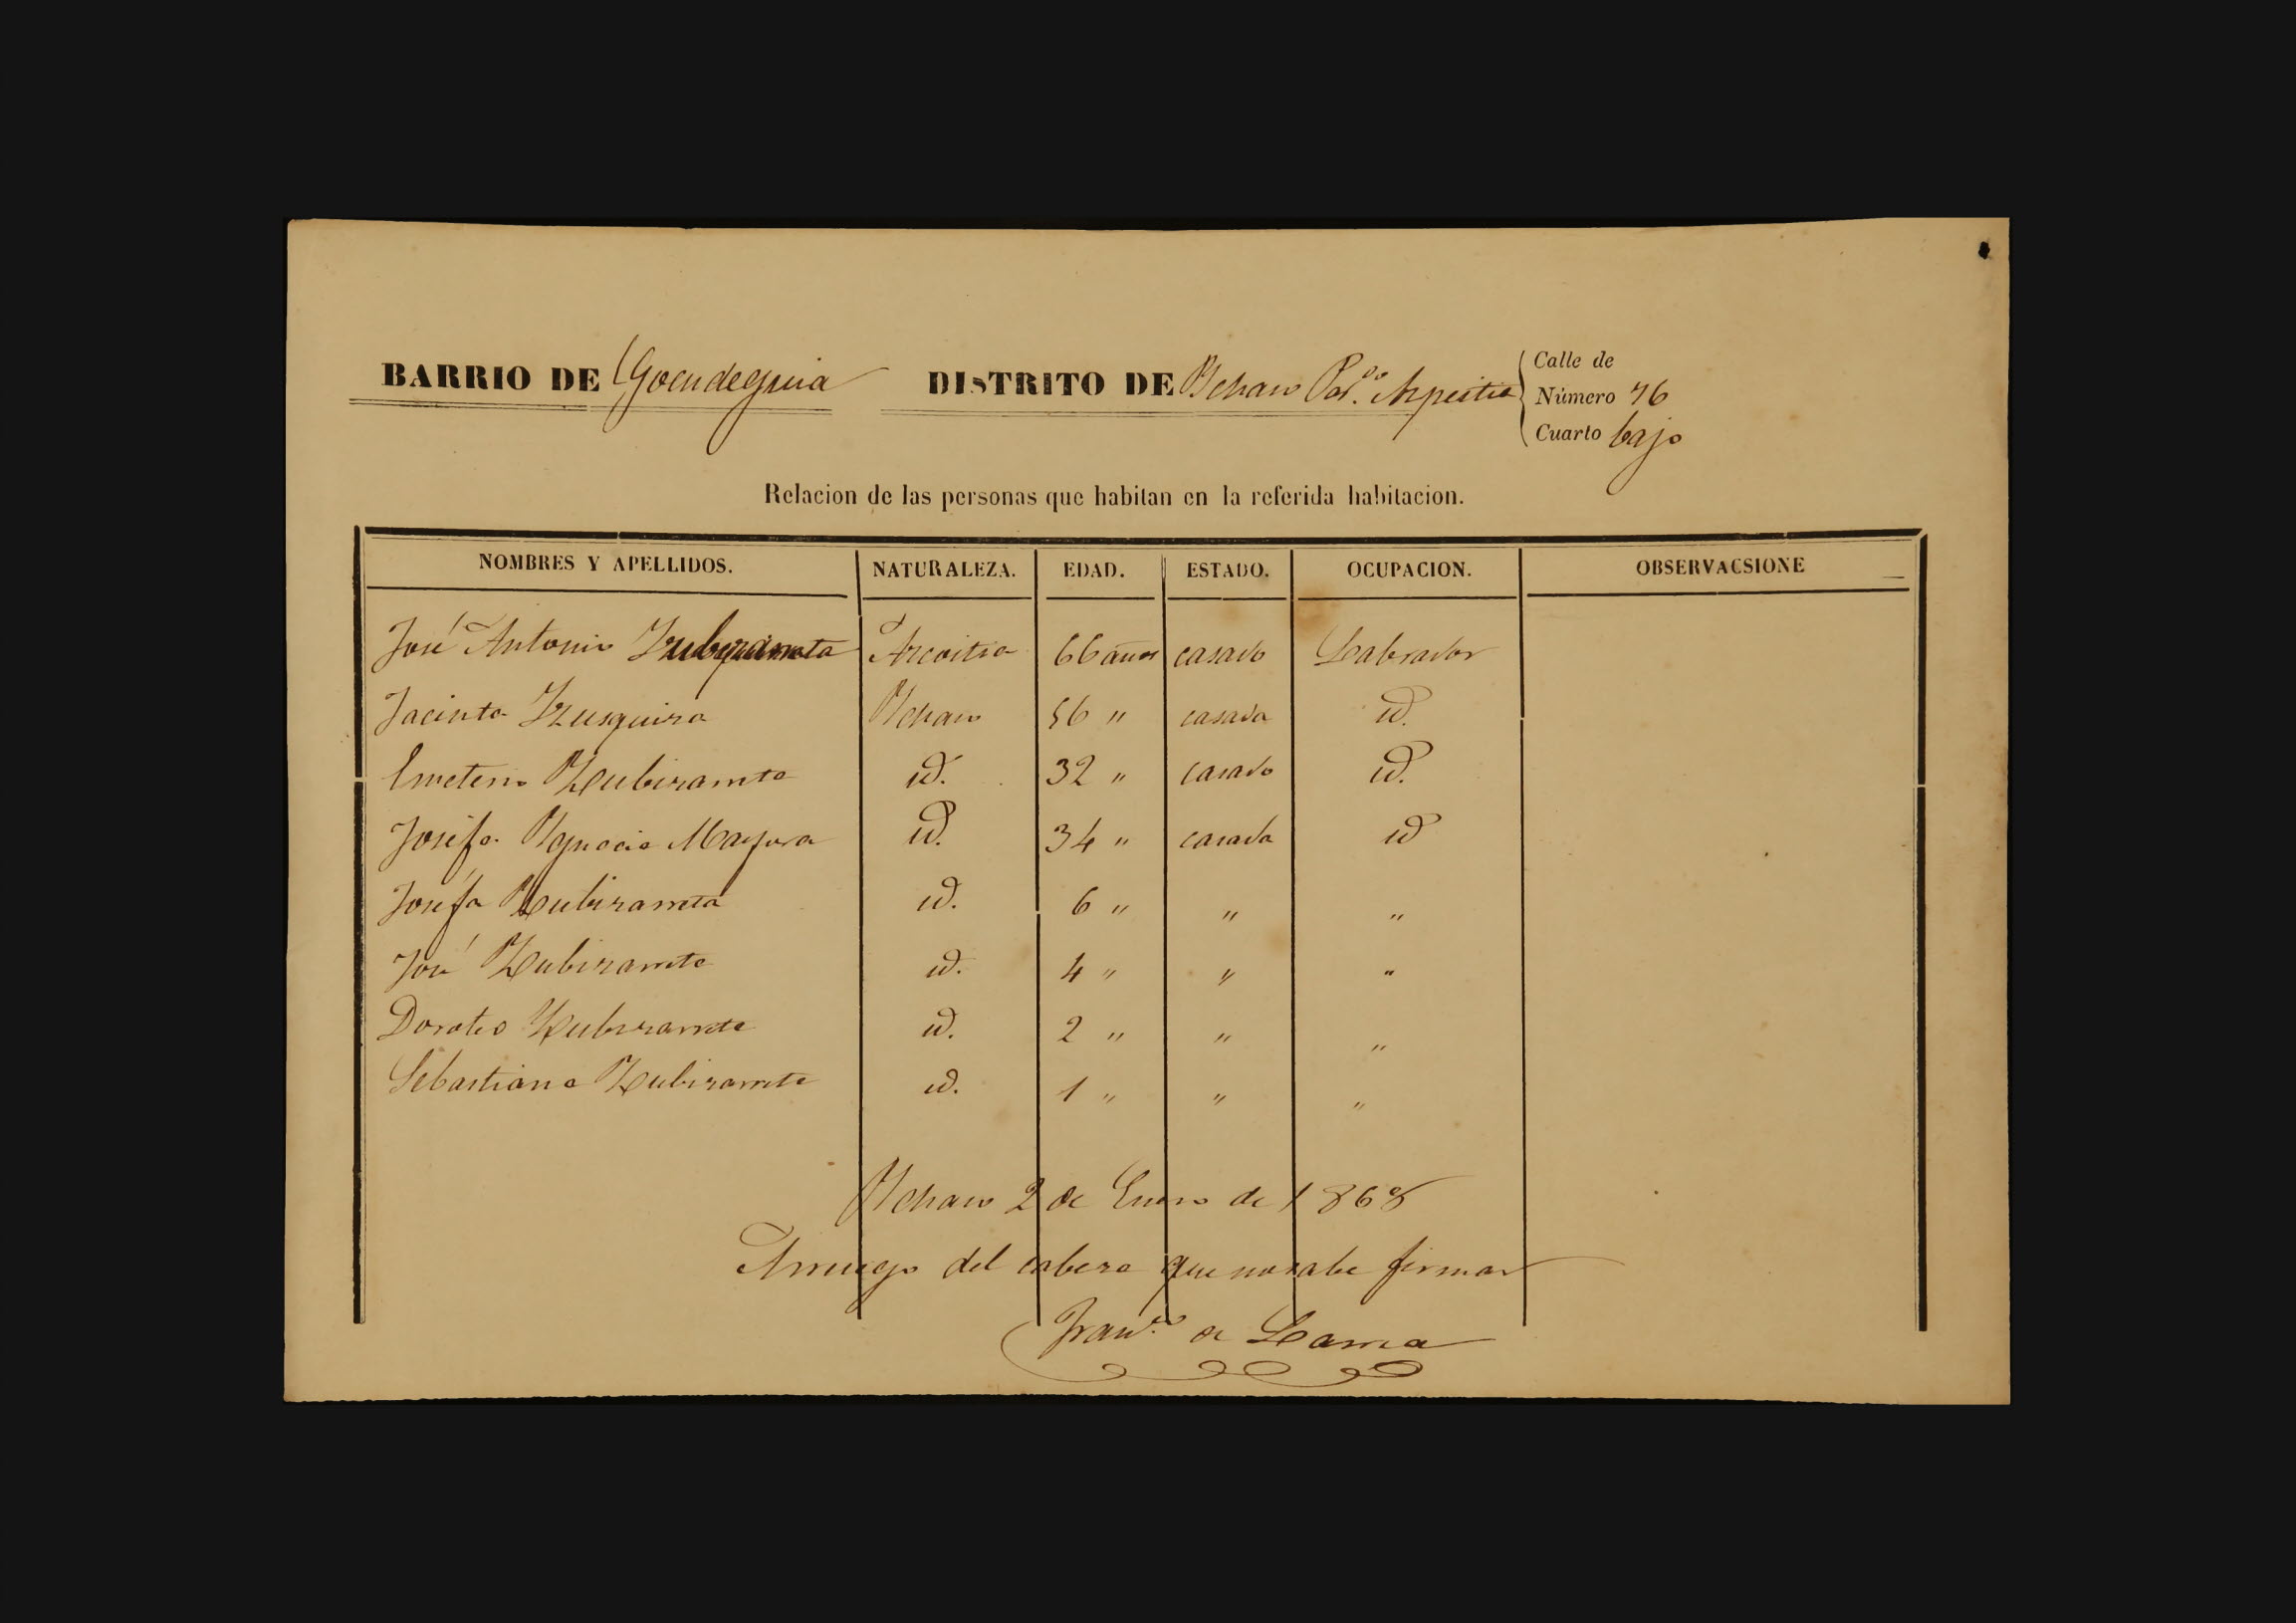 BARRIO DE Goendeguia DISTRITO DE Ychaso Par.do Azpeitia
Calle de
Número 76
Cuarto bajo
Relacion de las personas que habitan en la referida habitacion.
NOMBRES Y APELLIDOS. NATURALEZA. EDAD. ESTADO. OCUPACION. OBSERVACSIONE
José Antonio Zubizarreta Azcoitia 66 años casado Labrador
Jacinta Yzusquiza Ychaso 56 " casada id.
Emeterio Zubizarreta id. 32 " casado id.
Josefa Ygnacia Mayora id. 34 " casada id
Josefa Zubizarreta id. 6 " " "
José Zubizarreta id. 4 " " "
Doroteo Zubizarreta id. 2 " " "
Sebastiana Zubizarreta id. 1 " " "
Ychaso 2 de Enero de 1868
Arruego del cabeza que no sabe firmar
Franco. de Lasa